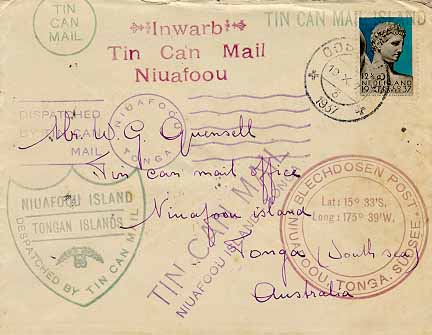 TIN
CAN
MAIL
Inward
Tin Can Mail
Niuafoou
TIN CAN MAIL ISLAND
12½ ct
NEDERLAND
19 37
10 X
1937
DISPATCHED
BY
MAIL
NIUAFOOU
TONGA
Mr. W. G. Quensell
Tin can mail office
Niuafoou island
Tonga (South sea)
Australia
NIUAFOOU ISLAND
TONGAN ISLANDS
DESPATCHED BY TIN CAN MAIL
TIN CAN MAIL
NIUAFOOU ISLAND
BLECHDOSEN POST
Lat: 15° 33'S.
Long: 175° 39'W.
TONGA, SUDSEE